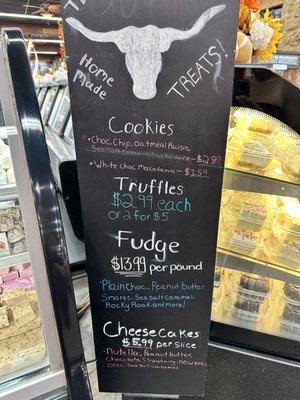 Home
made
TREATS!
Cookies
•Choc. Chip, Oatmeal Raisin
Sea Salt Caramel, Snickerdoodle - $2.89
•White Choc. Macadamia -
Truffles
$2.99 each
or 2 for $5
Fudge
$13.99 per pound
Plain Choc., Peanut butter
Smores, Sea Salt Caramel,
Rocky Road, and more!
CheeseCakes
$5.99 per Slice
•Nutella, Peanut butter,
Chocolate, Strawberry, New York
Oreo, Sea Salt Caramel